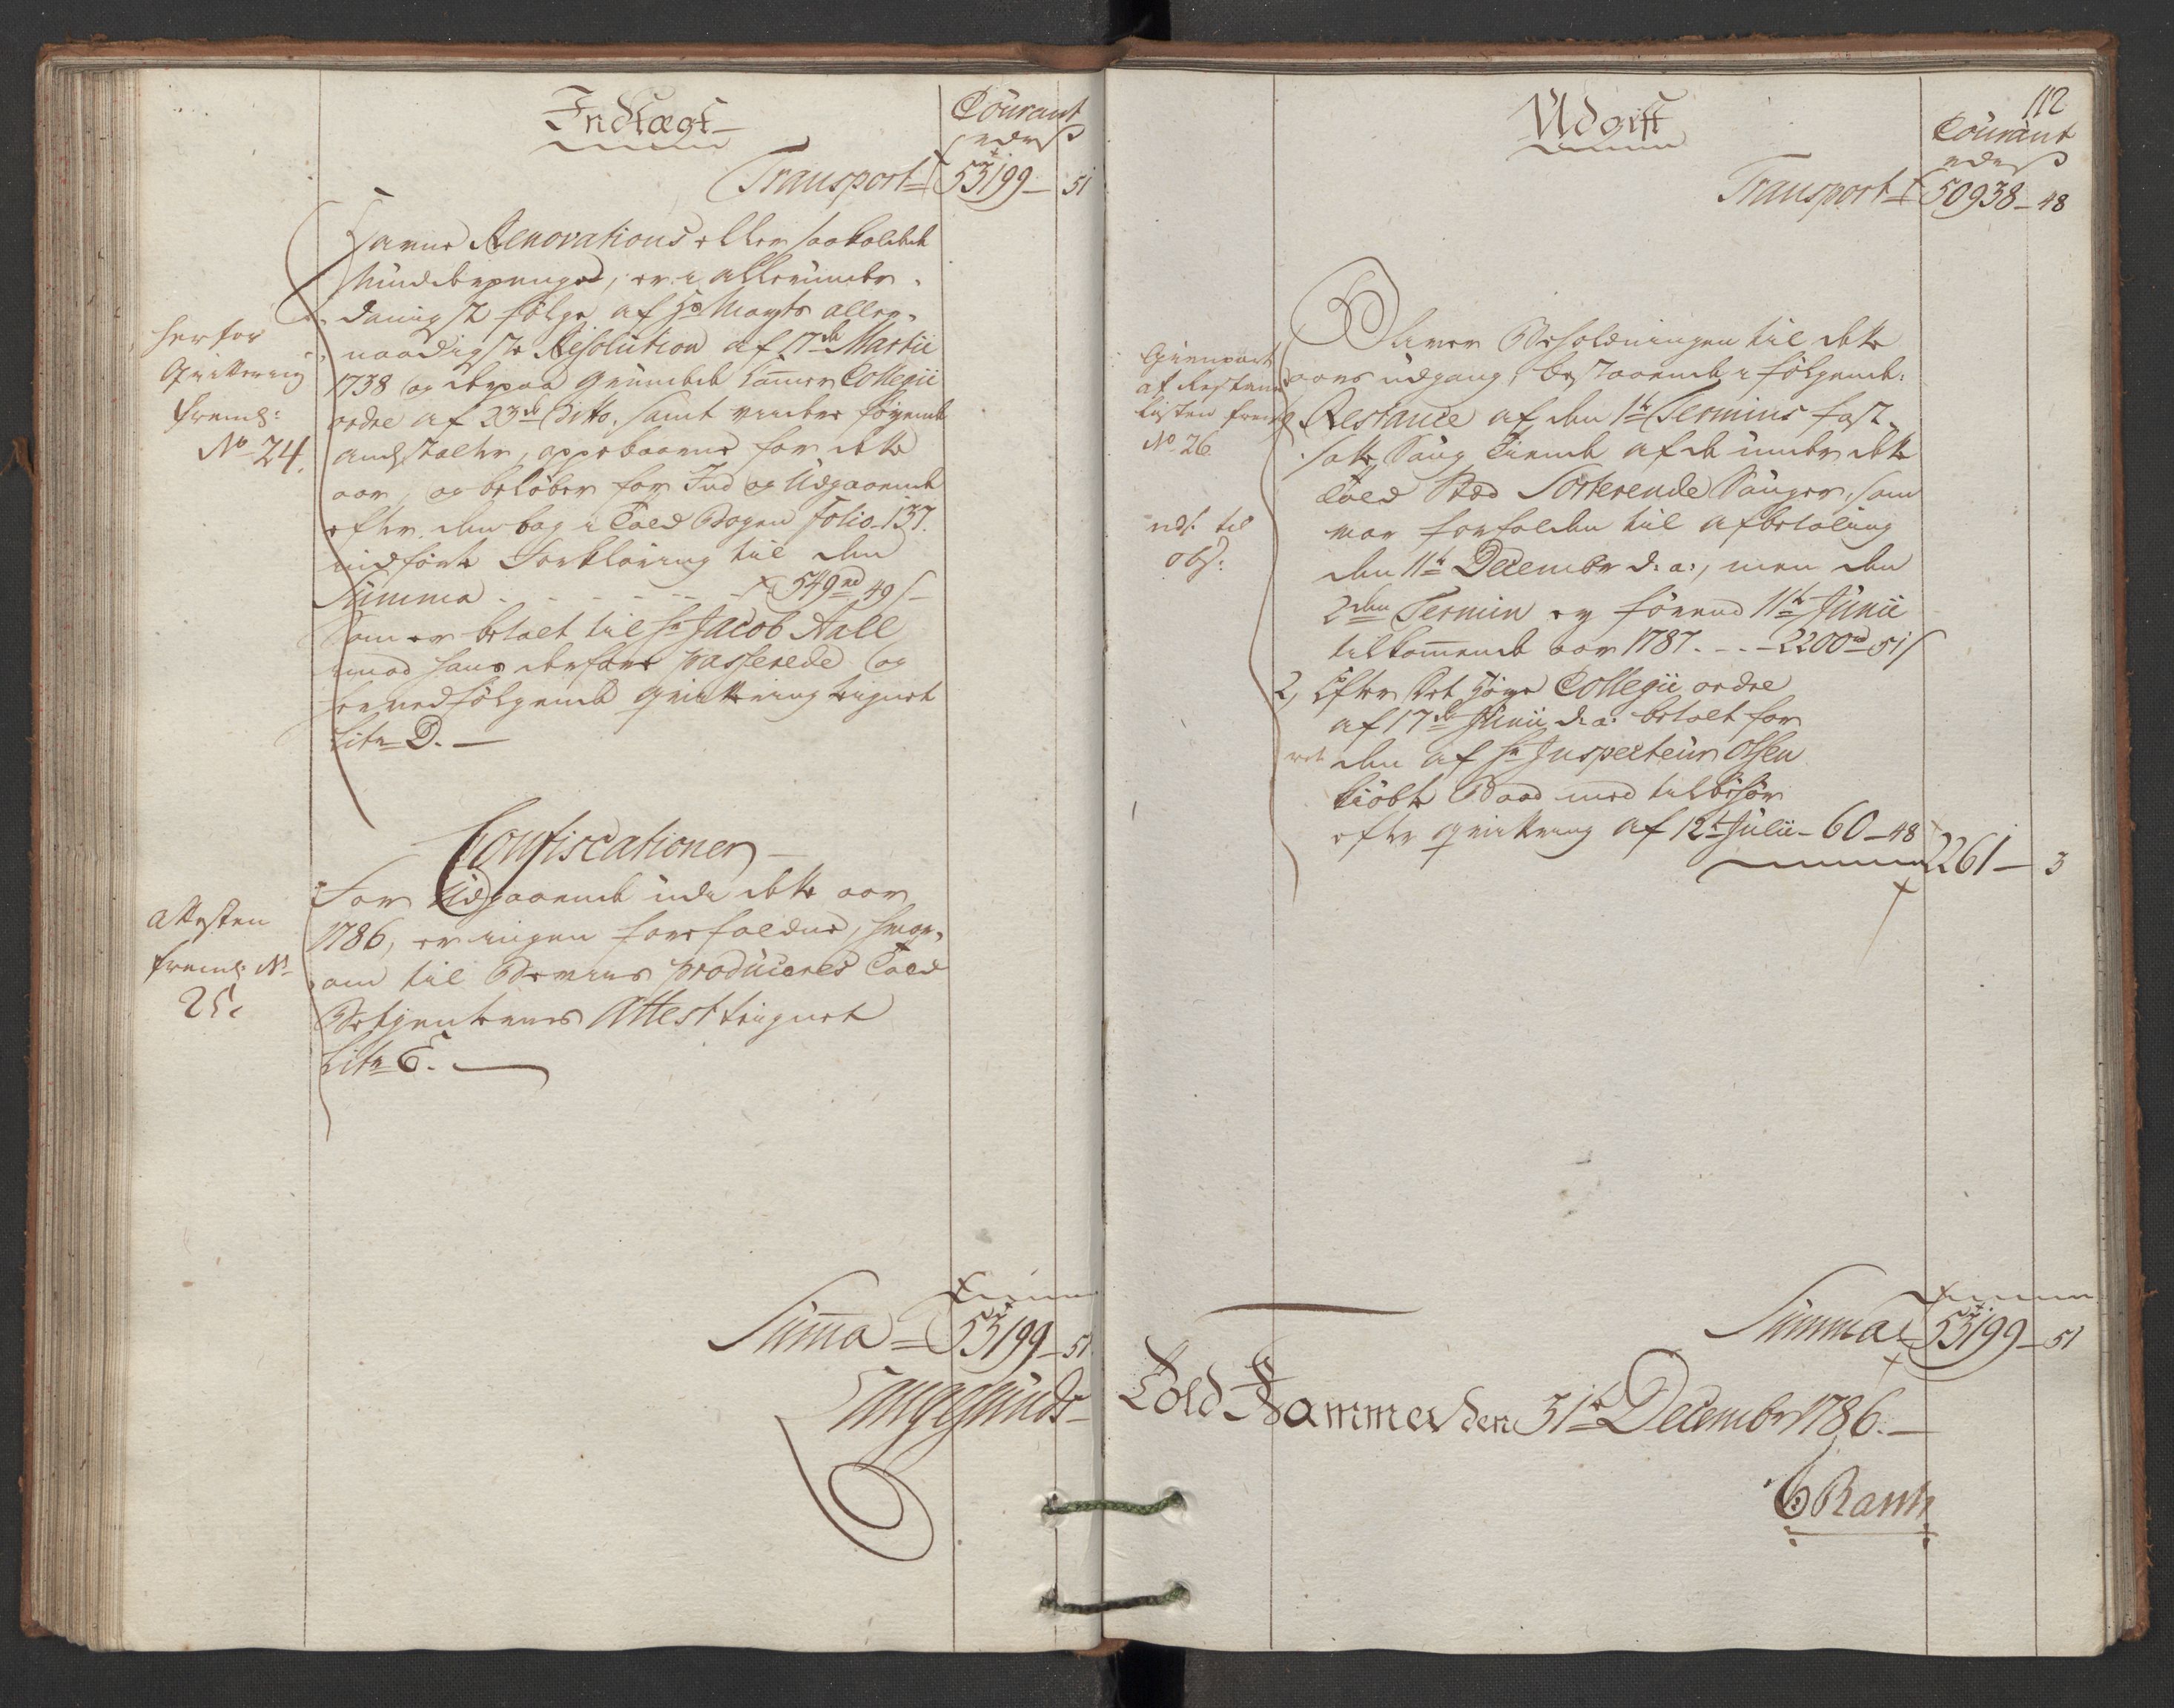 Indtægt
Courant
rdr ß
Transport 53199 - 51
Havne Renovations eller saakaldede
Mudderpenge, er i allerunder-
danigst følge af Hs Mayts aller-
naadigste Resolution af 17de Martii
1738 og derpaa grundede Cammer Collegii
ordre af 23de Ditto, samt videre føyende
Anstalter, oppebaarne for dette
aar, og beløber for Ind og Udgaaende
efter den bag i Told Bogen folio 137.
indførte Forklaring til den
Summa - - - - - - 549rd 49 ß
Som er betalt til Hr Jacob Aall
imod hans derfore passerede og
hervedfølgende qvittering tegnet
Litr D. —
herfor
Qvittering
freml:
No 24.
Confiscationer
For Udgaaende udi dette aar
1786, er ingen forefaldne, hvor-
om til Beviis produceres Told
Betjenternes Attest tegnet
Litr E.
Attesten
freml: No
25.
Summa 53199 - 51
Langesunds
112
Udgift
Courant
rdr ß
Transport 50938 - 48
Bliver Beholdningen til dette
aars udgang, bestaaende i følgende:
Restance af den 1te Termins fast-
satte Saug Tiende af de under dette
Told Sted Sorterende Sauger, som
var forfalden til afbetaling
den 11te Decembr d: a:, men den
2den Termin ey førend 11te Junii
tilkommende aar 1787. - - - 2200rd 51 ß
2, Efter Det Høye Collegii ordre
af 17de Junii d: a: betalt for
den af Hr Inspecteur Olsen
kiøbte Baad med tilbehør
efter qvittering af 12te Julii - 60 - 48
2261 - 3
Gienpart
af Restance
Listen freml
No 26
rds. til
obs:
Summa 53199 - 51
Told Kammer den 31te Decembr 1786.